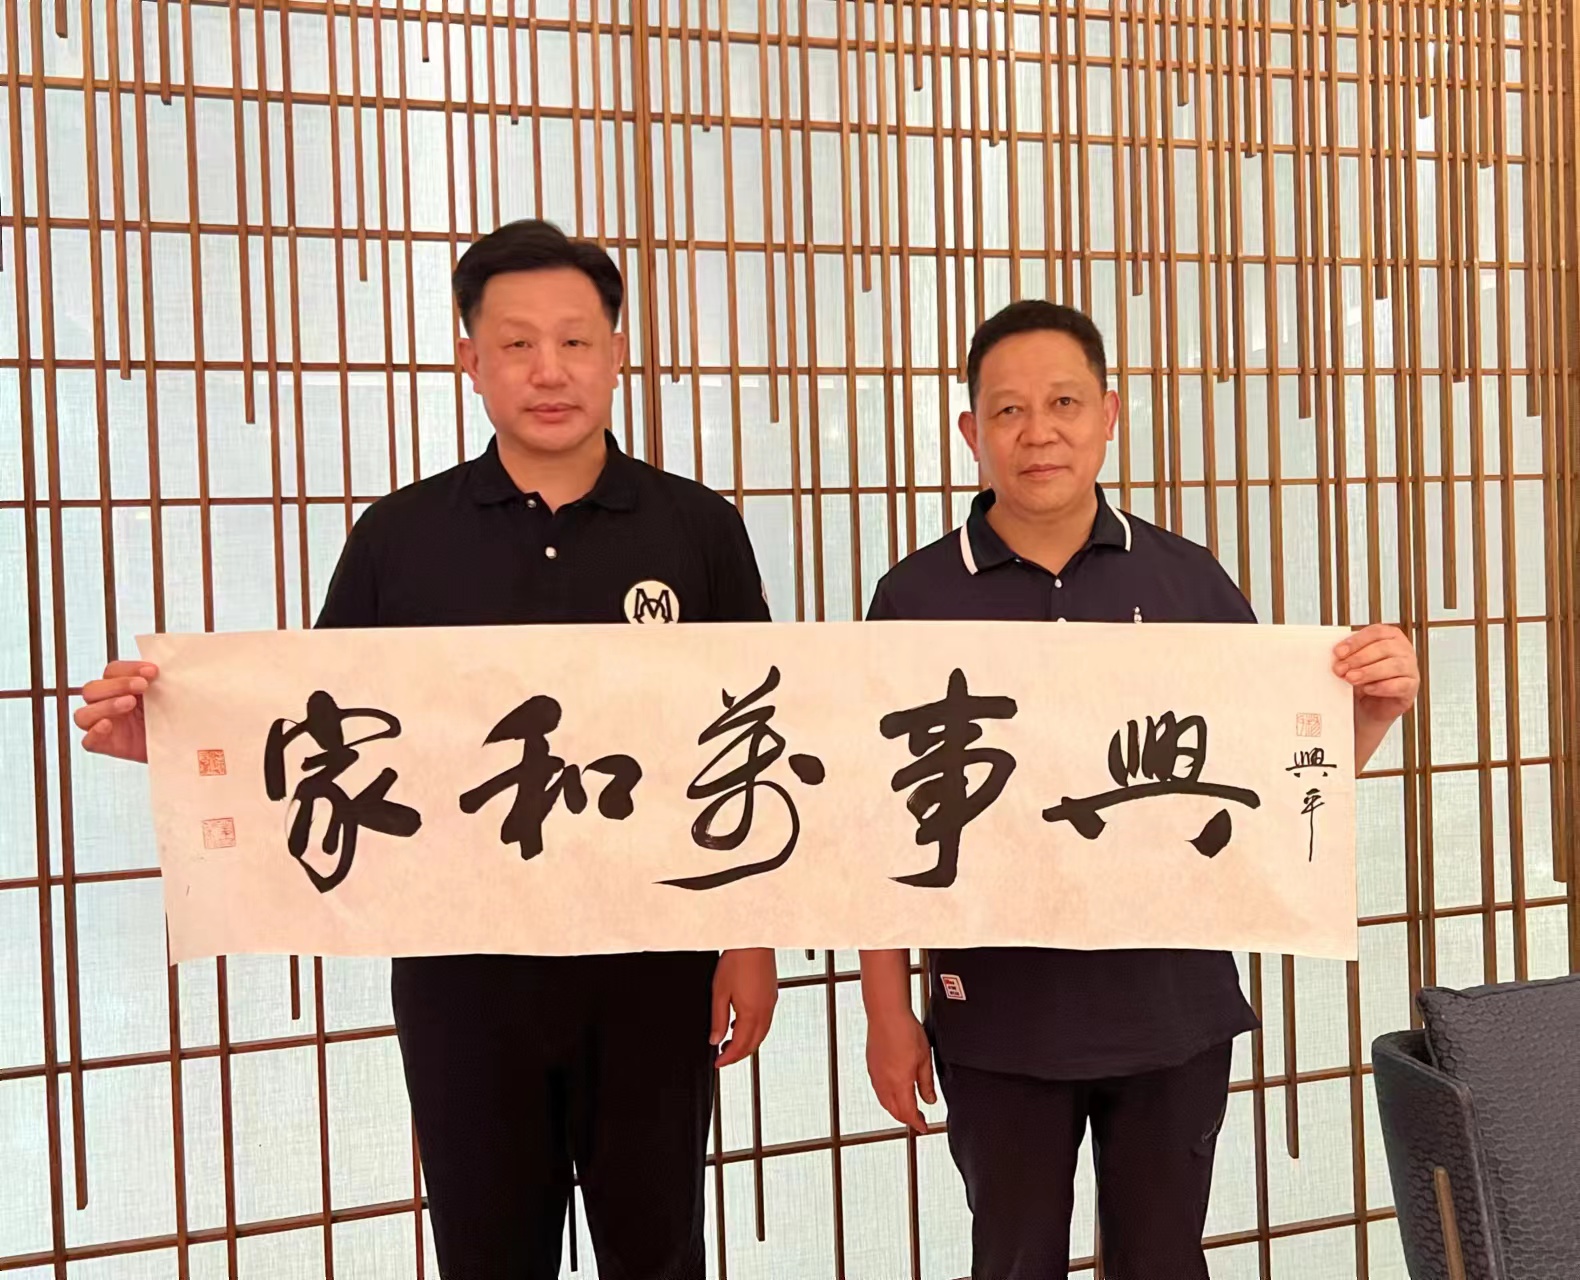 家和萬事興
興平